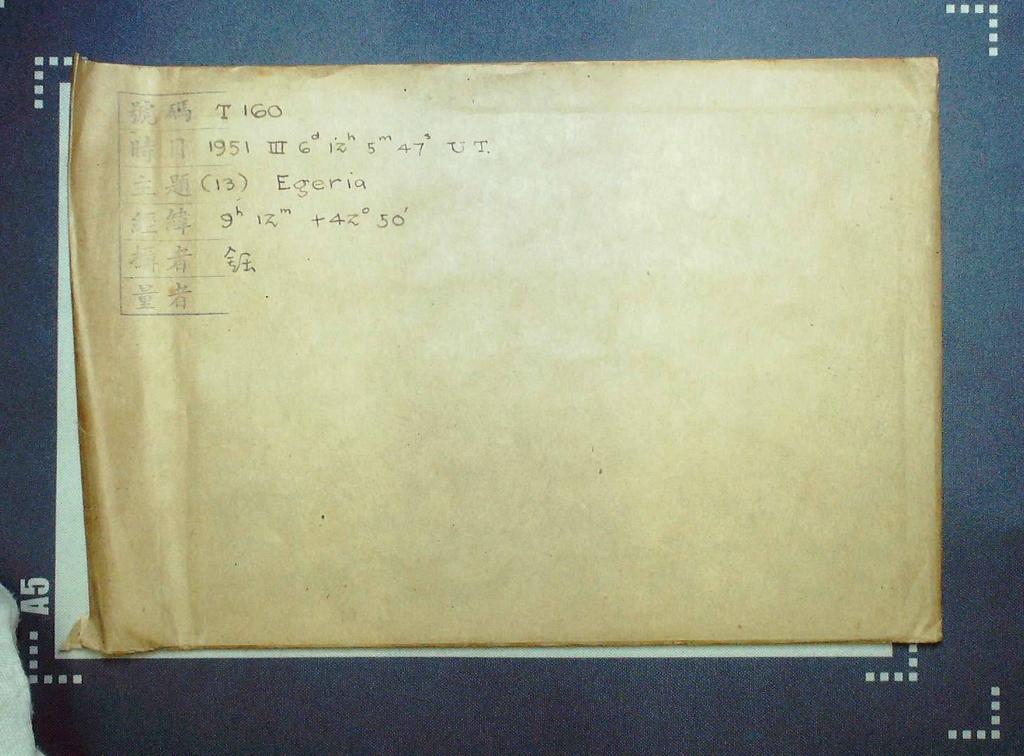 號碼 T 160
時日 1951 III 6ᵈ 12ʰ 5ᵐ 47ˢ U T.
主題 (13) Egeria
經緯 9ʰ 12ᵐ +42° 50'
攝者
量者
A5